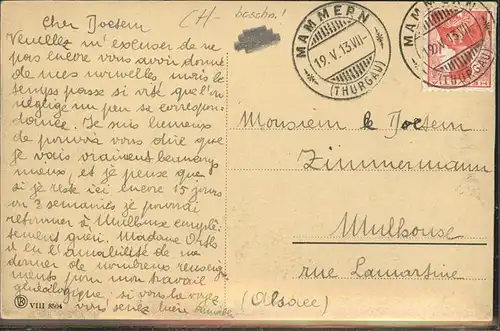 CH- beschn.!
Cher Joetem
Veuillez m'excuser de ne
pas encore vous avoir donné
de mes nouvelles, mais le
temps passe si vite que l'on
néglige un peu sa correspon-
dance. Je suis heureux
de pouvoir vous dire que
je vais vraiment beaucoup
mieux, et je pense que
si je reste ici encore 15 jours
ou 3 semaines je pourrai
retourner à Mulhouse complè-
tement guéri. Madame
a eu l'amabilité de me
donner de nombreux renseig-
ments pour mon travail
généalogique; si vous la voyez
vous serez bien
VIII 8504
MAMMERN
19.V.13.VIII-
(THURGAU)
MAMMERN
19.V.13.VIII-
(THURGAU)
Monsieur le Joetem
Zimmermann
Mulhouse
rue Lamartine
(Alsace)